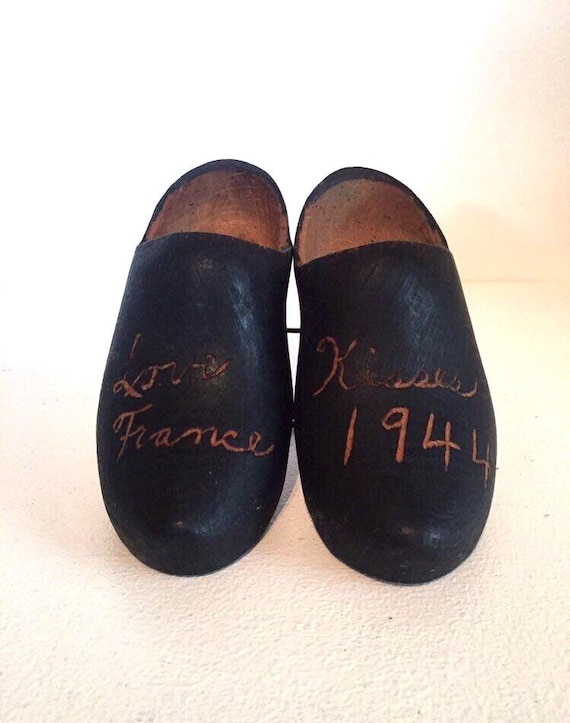 Love
France
Kisses
1944